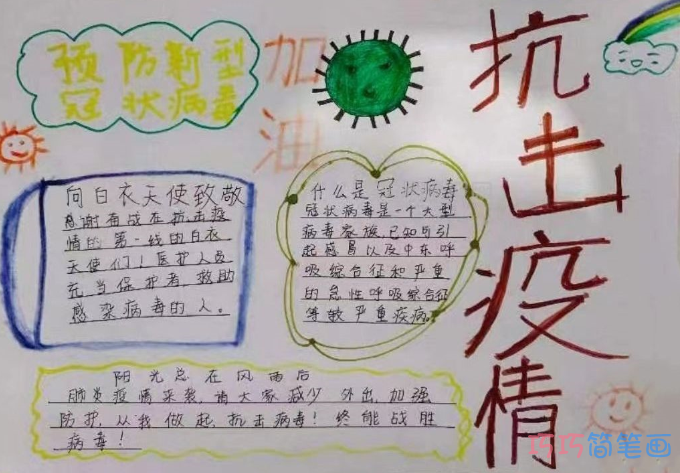 预防新型
冠状病毒
加
油
抗
击
疫
情
向白衣天使致敬
感谢有战在抗击疫
情的第一线的白衣
天使们！医护人员
充当保护者救助
感染病毒的人。
什么是冠状病毒
冠状病毒是一个大型
病毒家族,已知与引
起感昜以及中东呼
吸综合征和严重
的急性呼吸综合征
等致严重疾病。
阳光总在风雨后
肺炎疫情来袭,请大家减少外出,加强
防护,从我做起,抗击病毒！终能战胜
病毒！
巧巧简笔画